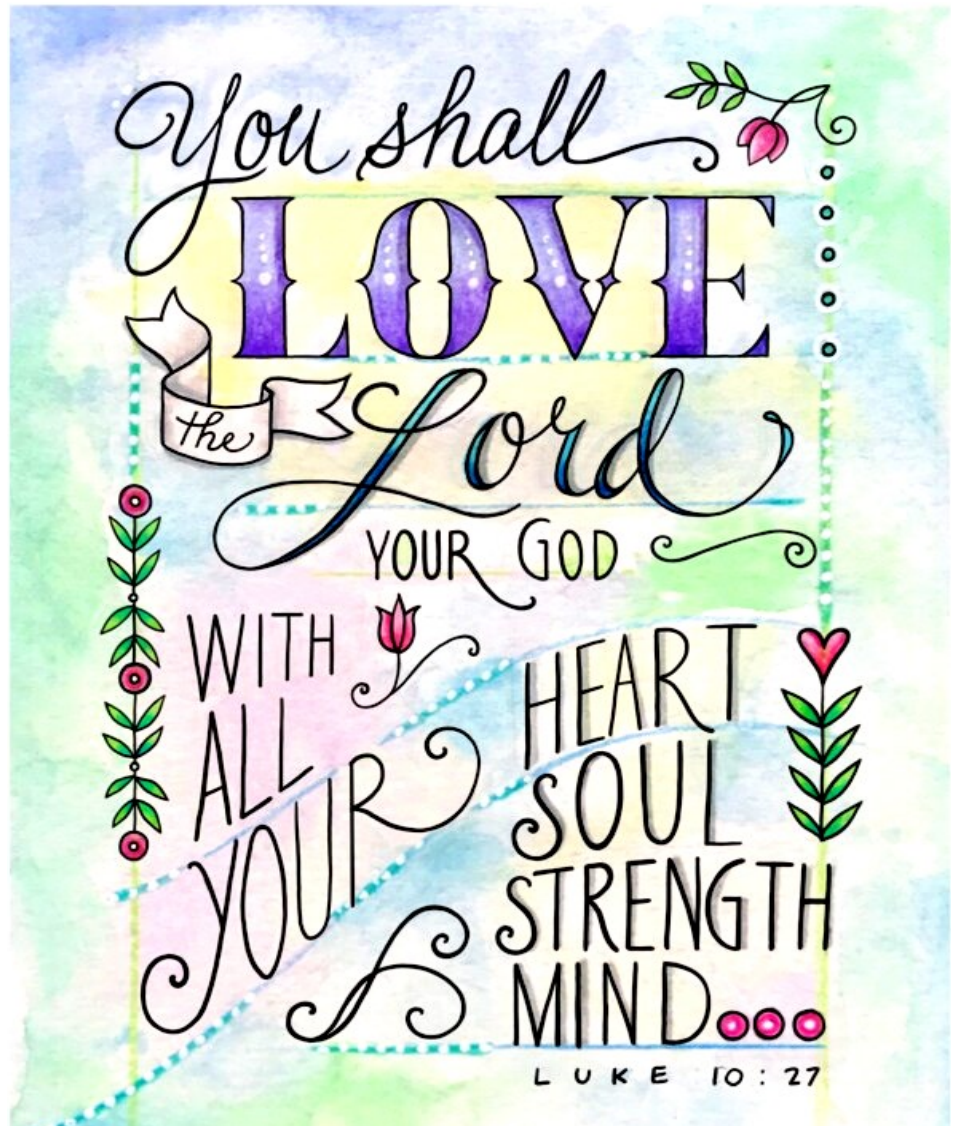 You shall
LOVE
the Lord
YOUR GOD
WITH
ALL
YOUR
HEART
SOUL
STRENGTH
MIND...
LUKE 10:27